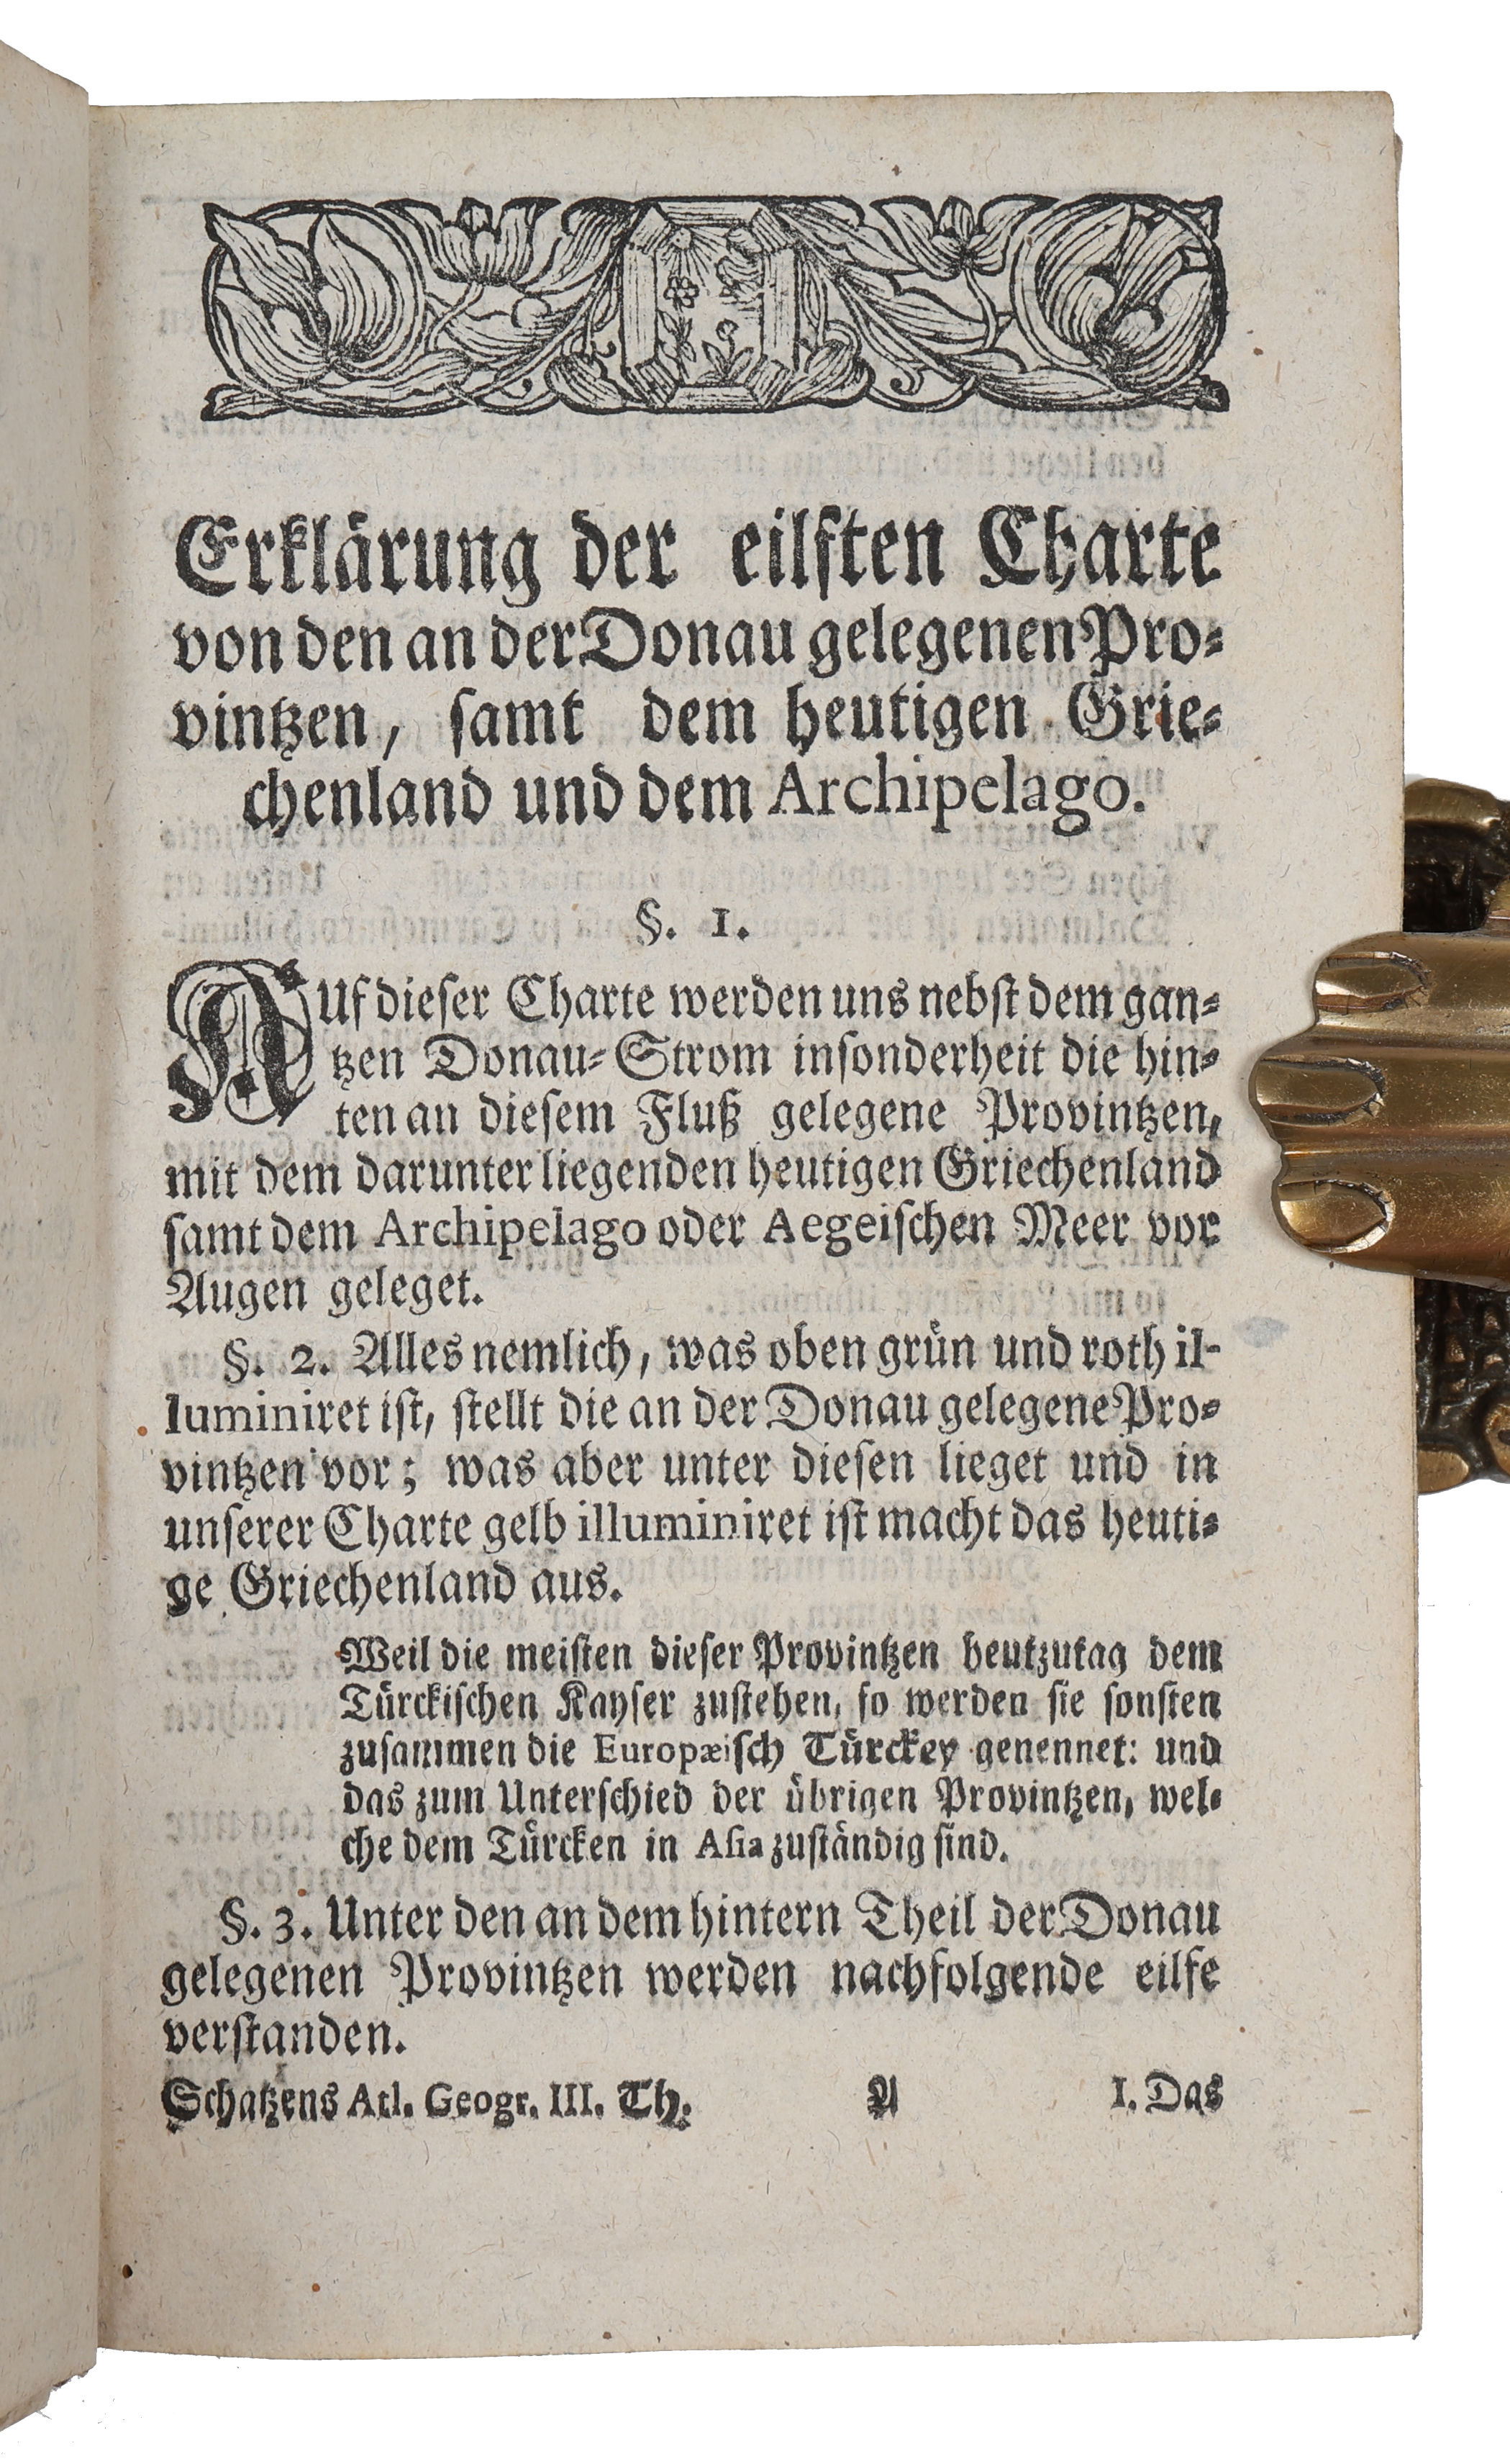 Erklärung der eilften Charte
von den an der Donau gelegenen Pro-
vintzen, samt dem heutigen Grie-
chenland und dem Archipelago.
§. 1.
AUf dieser Charte werden uns nebst dem gan-
tzen Donau-Strom insonderheit die hin-
ten an diesem Fluß gelegene Provintzen,
mit dem darunter liegenden heutigen Griechenland
samt dem Archipelago oder Aegeischen Meer vor
Augen geleget.
§. 2. Alles nemlich, was oben grün und roth il-
luminiret ist, stellt die an der Donau gelegene Pro-
vintzen vor; was aber unter diesen lieget und in
unserer Charte gelb illuminiret ist macht das heuti-
ge Griechenland aus.
Weil die meisten dieser Provintzen heutzutag dem
Türckischen Kayser zustehen, so werden sie sonsten
zusammen die Europæisch Türckey genennet: und
das zum Unterschied der übrigen Provintzen, wel-
che dem Türcken in Asia zuständig sind.
§. 3. Unter den an dem hintern Theil der Donau
gelegenen Provintzen werden nachfolgende eilfe
verstanden.
Schatzens Atl. Geogr. III. Th. A I. Das